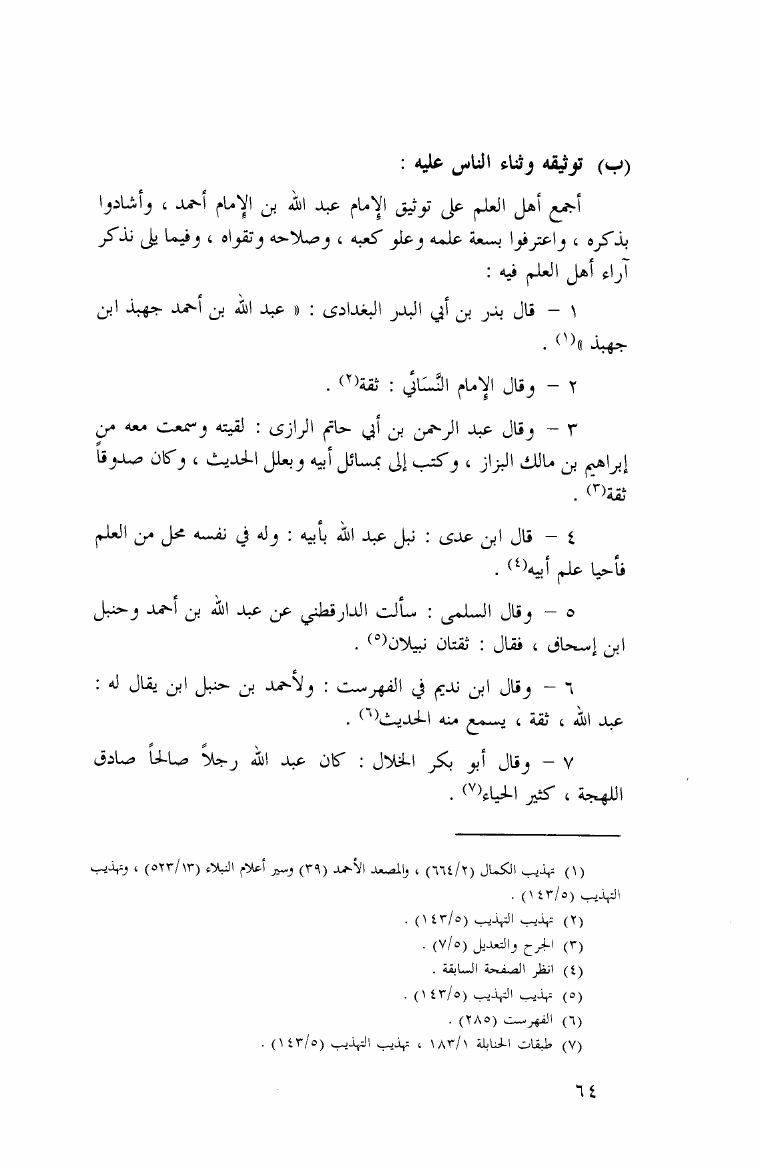 (ب) توثيقه وثناء الناس عليه :
أجمع أهل العلم على توثيق الإمام عبد الله بن الإمام أحمد ، وأشادوا
بذكره ، واعترفوا بسعة علمه وعلو كعبه ، وصلاحه وتقواه ، وفيما يلى نذكر
آراء أهل العلم فيه :
١ – قال بدر بن أبي البدر البغدادى : « عبد الله بن أحمد جهبذ ابن
جهبذ »(١) .
٢ – وقال الإمام النَّسَائي : ثقة(٢) .
٣ – وقال عبد الرحمن بن أبي حاتم الرازى : لقيته وسمعت معه من
إبراهيم بن مالك البزاز ، وكتب إلى بمسائل أبيه وبعلل الحديث ، وكان صدوقاً
ثقة(٣) .
٤ – قال ابن عدى : نبل عبد الله بأبيه : وله في نفسه محل من العلم
فأحيا علم أبيه(٤) .
٥ – وقال السلمى : سألت الدارقطني عن عبد الله بن أحمد وحنبل
ابن إسحاق ، فقال : ثقتان نبيلان(٥) .
٦ – وقال ابن نديم في الفهرست : ولأحمد بن حنبل ابن يقال له :
عبد الله ، ثقة ، يسمع منه الحديث(٦) .
٧ – وقال أبو بكر الخلال : كان عبد الله رجلاً صالحاً صادق
اللهجة ، كثير الحياء(٧) .
(١) تهذيب الكمال (٦٦٤/٢) ، والمصعد الأحمد (٣٩) وسير أعلام النبلاء (٥٢٣/١٣) ، وتهذيب
التهذيب (١٤٣/٥) .
(٢) تهذيب التهذيب (١٤٣/٥) .
(٣) الجرح والتعديل (٧/٥) .
(٤) انظر الصفحة السابقة .
(٥) تهذيب التهذيب (١٤٣/٥) .
(٦) الفهرست (٢٨٥) .
(٧) طبقات الحنابلة ١٨٣/١ ، تهذيب التهذيب (١٤٣/٥) .
٦٤